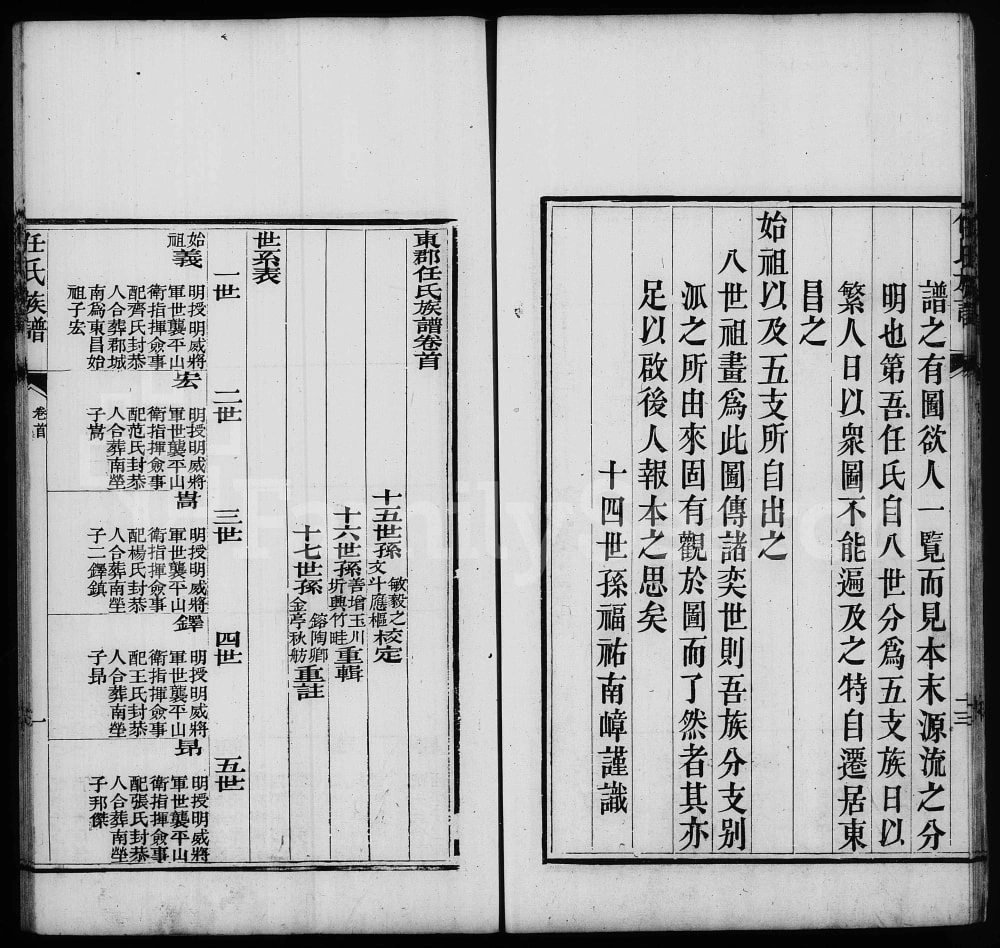 譜之有圖欲人一覽而見本末源流之分
明也第吾任氏自八世分爲五支族日以
繁人日以衆圖不能遍及之特自遷居東
昌之
始祖以及五支所自出之
八世祖畫爲此圖傳諸奕世則吾族分支別
派之所由來固有觀於圖而了然者其亦
足以啟後人報本之思矣
十四世孫福祐南嶂謹識
東郡任氏族譜卷首
十五世孫敏毅之文斗應樞校定
十六世孫善增玉川圻興竹畦重輯
十七世孫鎔陶卿金亭秋舫重註
世系表
一世
始祖義
明授明威將
軍世襲平山
衛指揮僉事
配齊氏封恭
人合葬郡城
南爲東昌始
祖子宏
二世
宏
明授明威將
軍世襲平山
衛指揮僉事
配范氏封恭
人合葬南塋
子嵩
三世
嵩
明授明威將
軍世襲平山
衛指揮僉事
配楊氏封恭
人合葬南塋
子二鐸鎮
四世
鐸
明授明威將
軍世襲平山
衛指揮僉事
配王氏封恭
人合葬南塋
子昂
五世
昂
明授明威將
軍世襲平山
衛指揮僉事
配張氏封恭
人合葬南塋
子邦傑
任氏族譜
卷首
一
任氏族譜
十三
FamilySearch